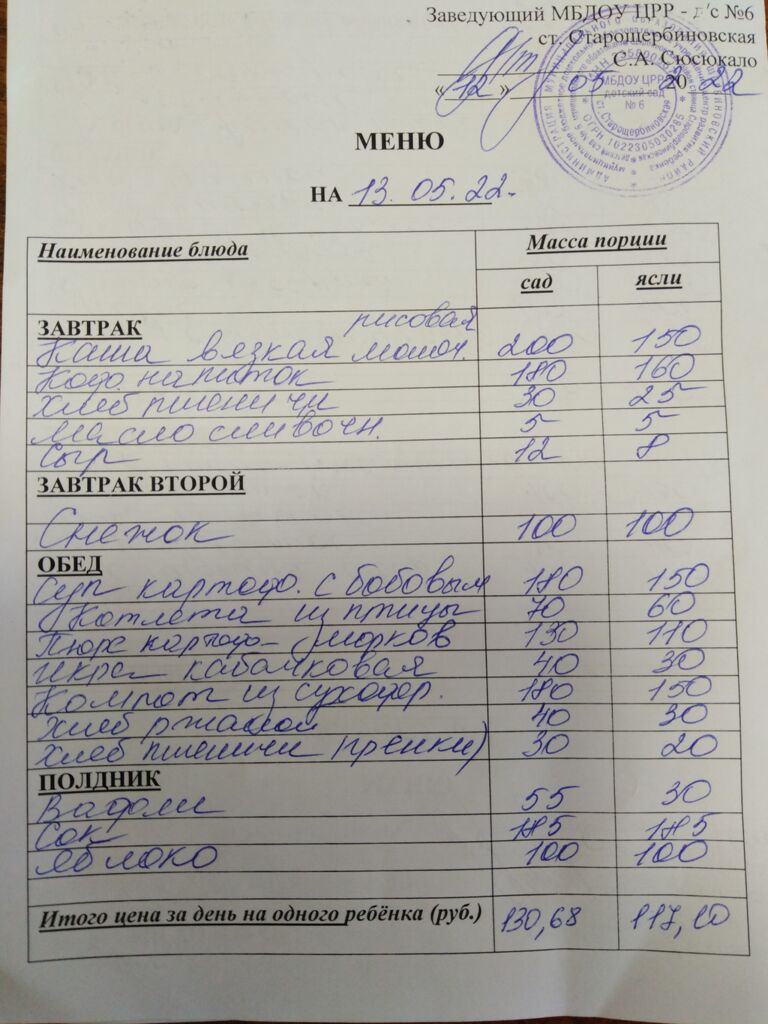 Заведующий МБДОУ ЦРР - д/с №6
ст. Старощербиновская
С.А. Сюсюкало
« 12 » 05 2022
МЕНЮ
НА 13.05.22.
Наименование блюда Масса порции
сад ясли
ЗАВТРАК рисовая
Каша вязкая молоч. 200 150
Кофе. напиток 180 160
Хлеб пшеничн 30 25
Масло сливочн. 5 5
Сыр 12 8
ЗАВТРАК ВТОРОЙ
Снежок 100 100
ОБЕД
Суп картоф. с бобовым 180 150
Котлета из птицы 70 60
Пюре картоф- морков 130 110
Икра кабачковая 40 30
Компот из сухофр. 180 150
Хлеб ржаной 40 30
Хлеб пшеничн (гренки) 30 20
ПОЛДНИК
Вафли 55 30
Сок 185 185
Яблоко 100 100
Итого цена за день на одного ребёнка (руб.) 130,68 117,10
МБДОУ ЦРР
детский сад
№ 6
ст. Старощербиновская
ОГРН 1022305030285